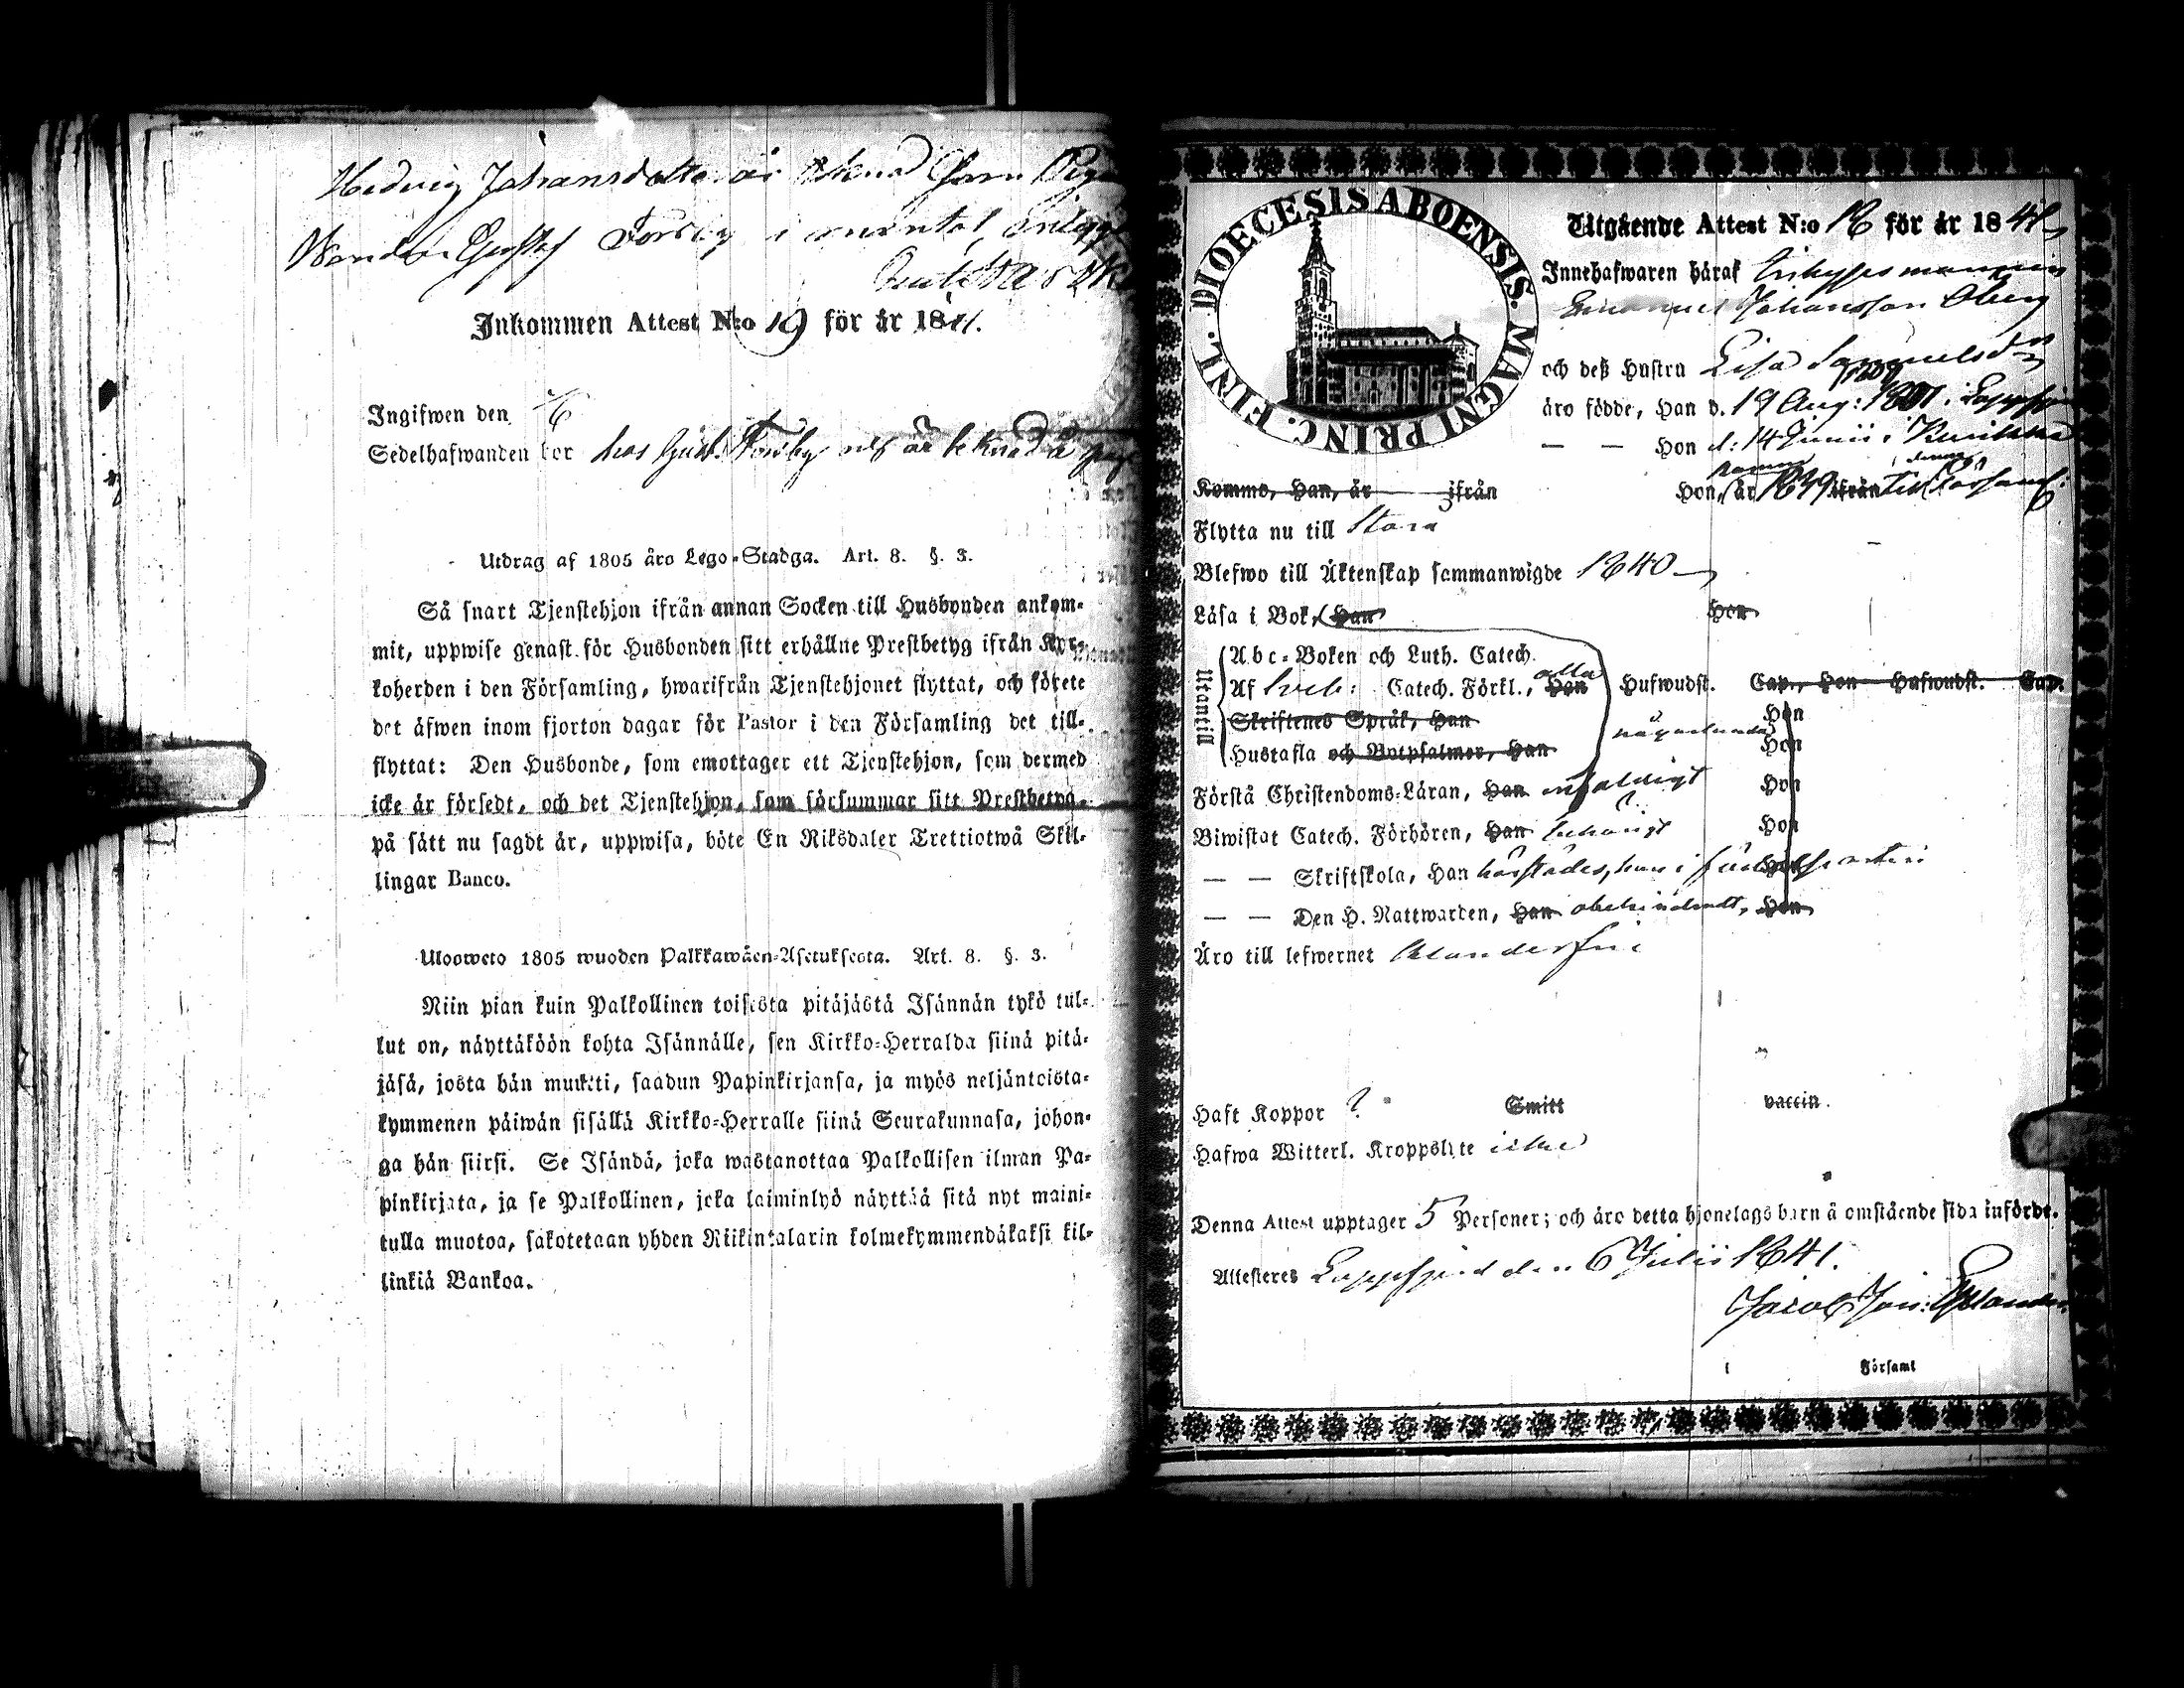 Hedvig Johansdotter är
Gustaf i mantal
Inkommen Attest N:o 19 för år 1841.
Ingifwen den
Sedelhafwanden bor hos Gust. Forsby är
Utdrag af 1805 års Lego-Stadga. Art. 8. §. 3.
Så snart Tjenstehjon ifrån annan Socken till Husbonden ankom-
mit, uppwise genast för Husbonden sitt erhållne Prestbetyg ifrån Kyr-
koherden i den Församling, hwarifrån Tjenstehjonet flyttat, och förete
det äfwen inom fjorton dagar för Pastor i den Församling det till-
flyttat: Den Husbonde, som emottager ett Tjenstehjon, som dermed
icke är försedt, och det Tjenstehjon, som försummar sitt Prestbetyg,
på sätt nu sagdt är, uppwisa, böte En Riksdaler Trettiotwå Skil-
lingar Banco.
Uloosweto 1805 wuoden Palkkawäen-Asetuksesta. Art. 8. §. 3.
Niin pian kuin Palkollinen toisesta pitäjästä Isännän tykö tul-
lut on, näyttäköön kohta Isännälle, sen Kirkko-Herralda siinä pitä-
jäsä, josta hän muutti, saadun Papinkirjansa, ja myös neljäntoista-
kymmenen päiwän sisällä Kirkko-Herralle siinä Seurakunnasa, johon-
ga hän siirsi. Se Isändä, joka wastanottaa Palkollisen ilman Pa-
pinkirjata, ja se Palkollinen, joka laiminlyö näyttää sitä nyt maini-
tulla muotoa, sakotetaan yhden Riikintalarin kolmekymmendäkaksi kil-
linkiä Bankoa.
DIOECESIS ABOENSIS. MAGNI PRINC. FINL.
Utgående Attest N:o 18 för år 1841
Innehafwaren häraf Inhysesmannen
Emanuel Johansson Öberg
och deß Hustru Lisa Samuelsdr
äro födde, Han d. 19 Aug: i Lappfjerd
— — Hon d: 14 Junii i
Komne, Han, år ifrån Hon, år 1839 ifrån till
Flytta nu till Stora
Blefwo till Äktenskap sammanwigde 1840
Läsa i Bok, Han Hon
Utantill
Abc-Boken och Luth. Catech.
Af Sveb: Catech. Förkl., Han alla Hufwudst. Cap., Hon Hufwudst. Cap.
Skriftenes Språk, Han Hon
någorlunda
Hustafla och Botpsalmer, Han Hon
Förstå Christendoms-Läran, Han enfaldigt Hon
Biwistat Catech. Förhören, Han behörigt Hon
— — Skriftskola, Han härstädes, hon i
— — Den H. Nattwarden, Han obehindradt, Hon
Äro till lefwernet klanderfrie
Haft Koppor ? Smitt vaccin.
Hafwa Witterl. Kroppslyte icke
Denna Attest upptager 5 Personer; och äro detta hjonelags barn å omstående sida införde.
Attesteres Lappfjerd den 6 Julii 1841.
Jacob Joh:
Församl